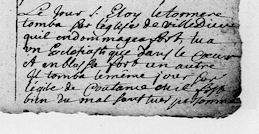 Le Jour S. Eloy le tonnerre
tomba sur l'eglise de villedieu
qu'il endommagea fort, tua
un Eclesiastique dans le Choeur
et en blessa fort un autre
il tomba le même jour sur
l'eglise de Coutance ou il fist
bien du mal sans tuer personne